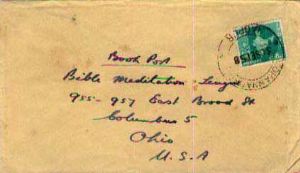 Book Post
Bible Meditation League
955-957 East Broad St
Columbus 5
Ohio
U.S.A